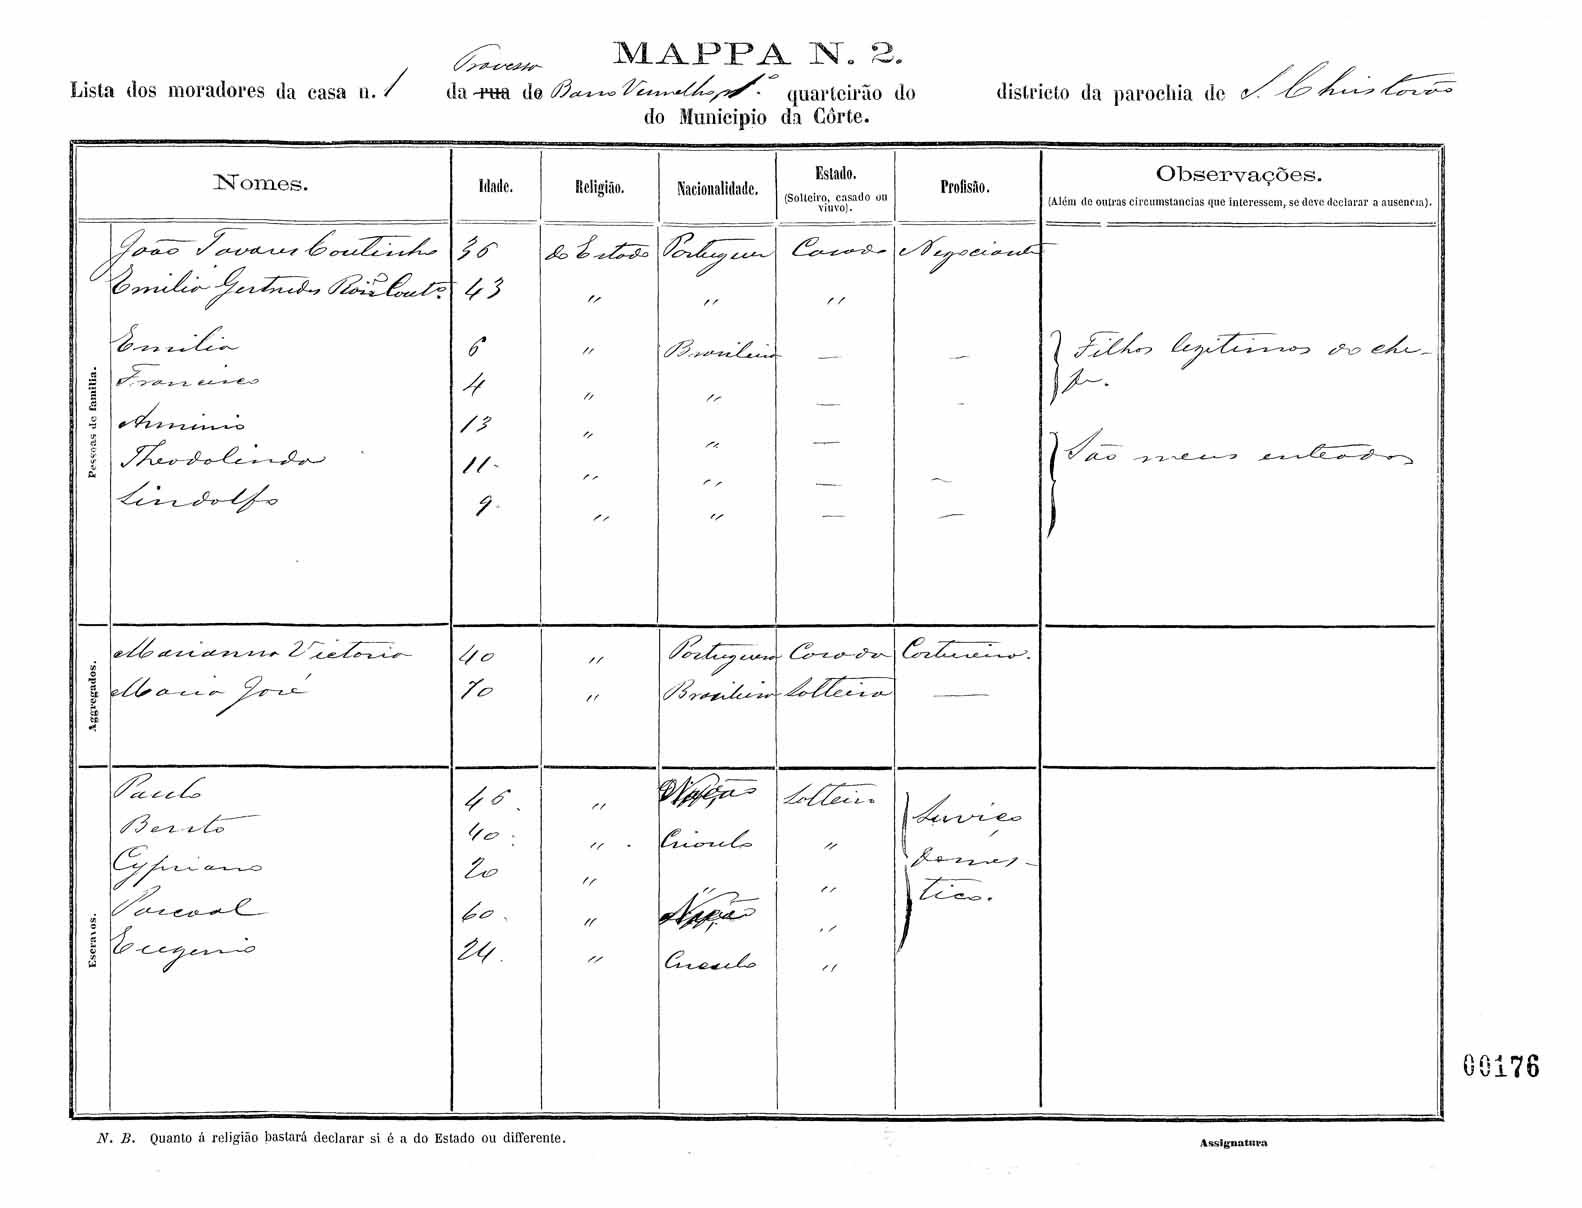 MAPPA N. 2.
Travessa
Lista dos moradores da casa n. 1 da rua do Barro Vermelho 1º quarteirão do districto da parochia de S. Christovão
do Municipio da Côrte.
Nomes. Idade. Religião. Nacionalidade. Estado. (Solteiro, casado ou viuvo). Profisão. Observações. (Além de outras circumstancias que interessem, se deve declarar a ausencia).
Pessoas de familia.
João Tavares Coutinho 36 do Estado Portuguez Casado Negociante
Emilia Gertrudes Coutº 43 " " "
Emilia 6 " Brasileira — — Filhos legitimos do che-
Francisco 4 " " — — fe.
Arminio 13 " " —
Theodolinda 11 " " — — São meus enteados
Lindolfo 9 " " — —
Aggregados.
Marianna Victoria 40 " Portugueza Casada Costureira.
Maria José 70 " Brasileira Solteira —
Escravos.
Paulo 46 " Nação Solteiro Serviço
Bento 40 " Crioulo " domes-
Cypriano 20 " " " tico.
Pascoal 60 " Nação "
Eugenio 24 " Crioulo "
00176
N. B. Quanto á religião bastará declarar si é a do Estado ou differente.
Assignatura